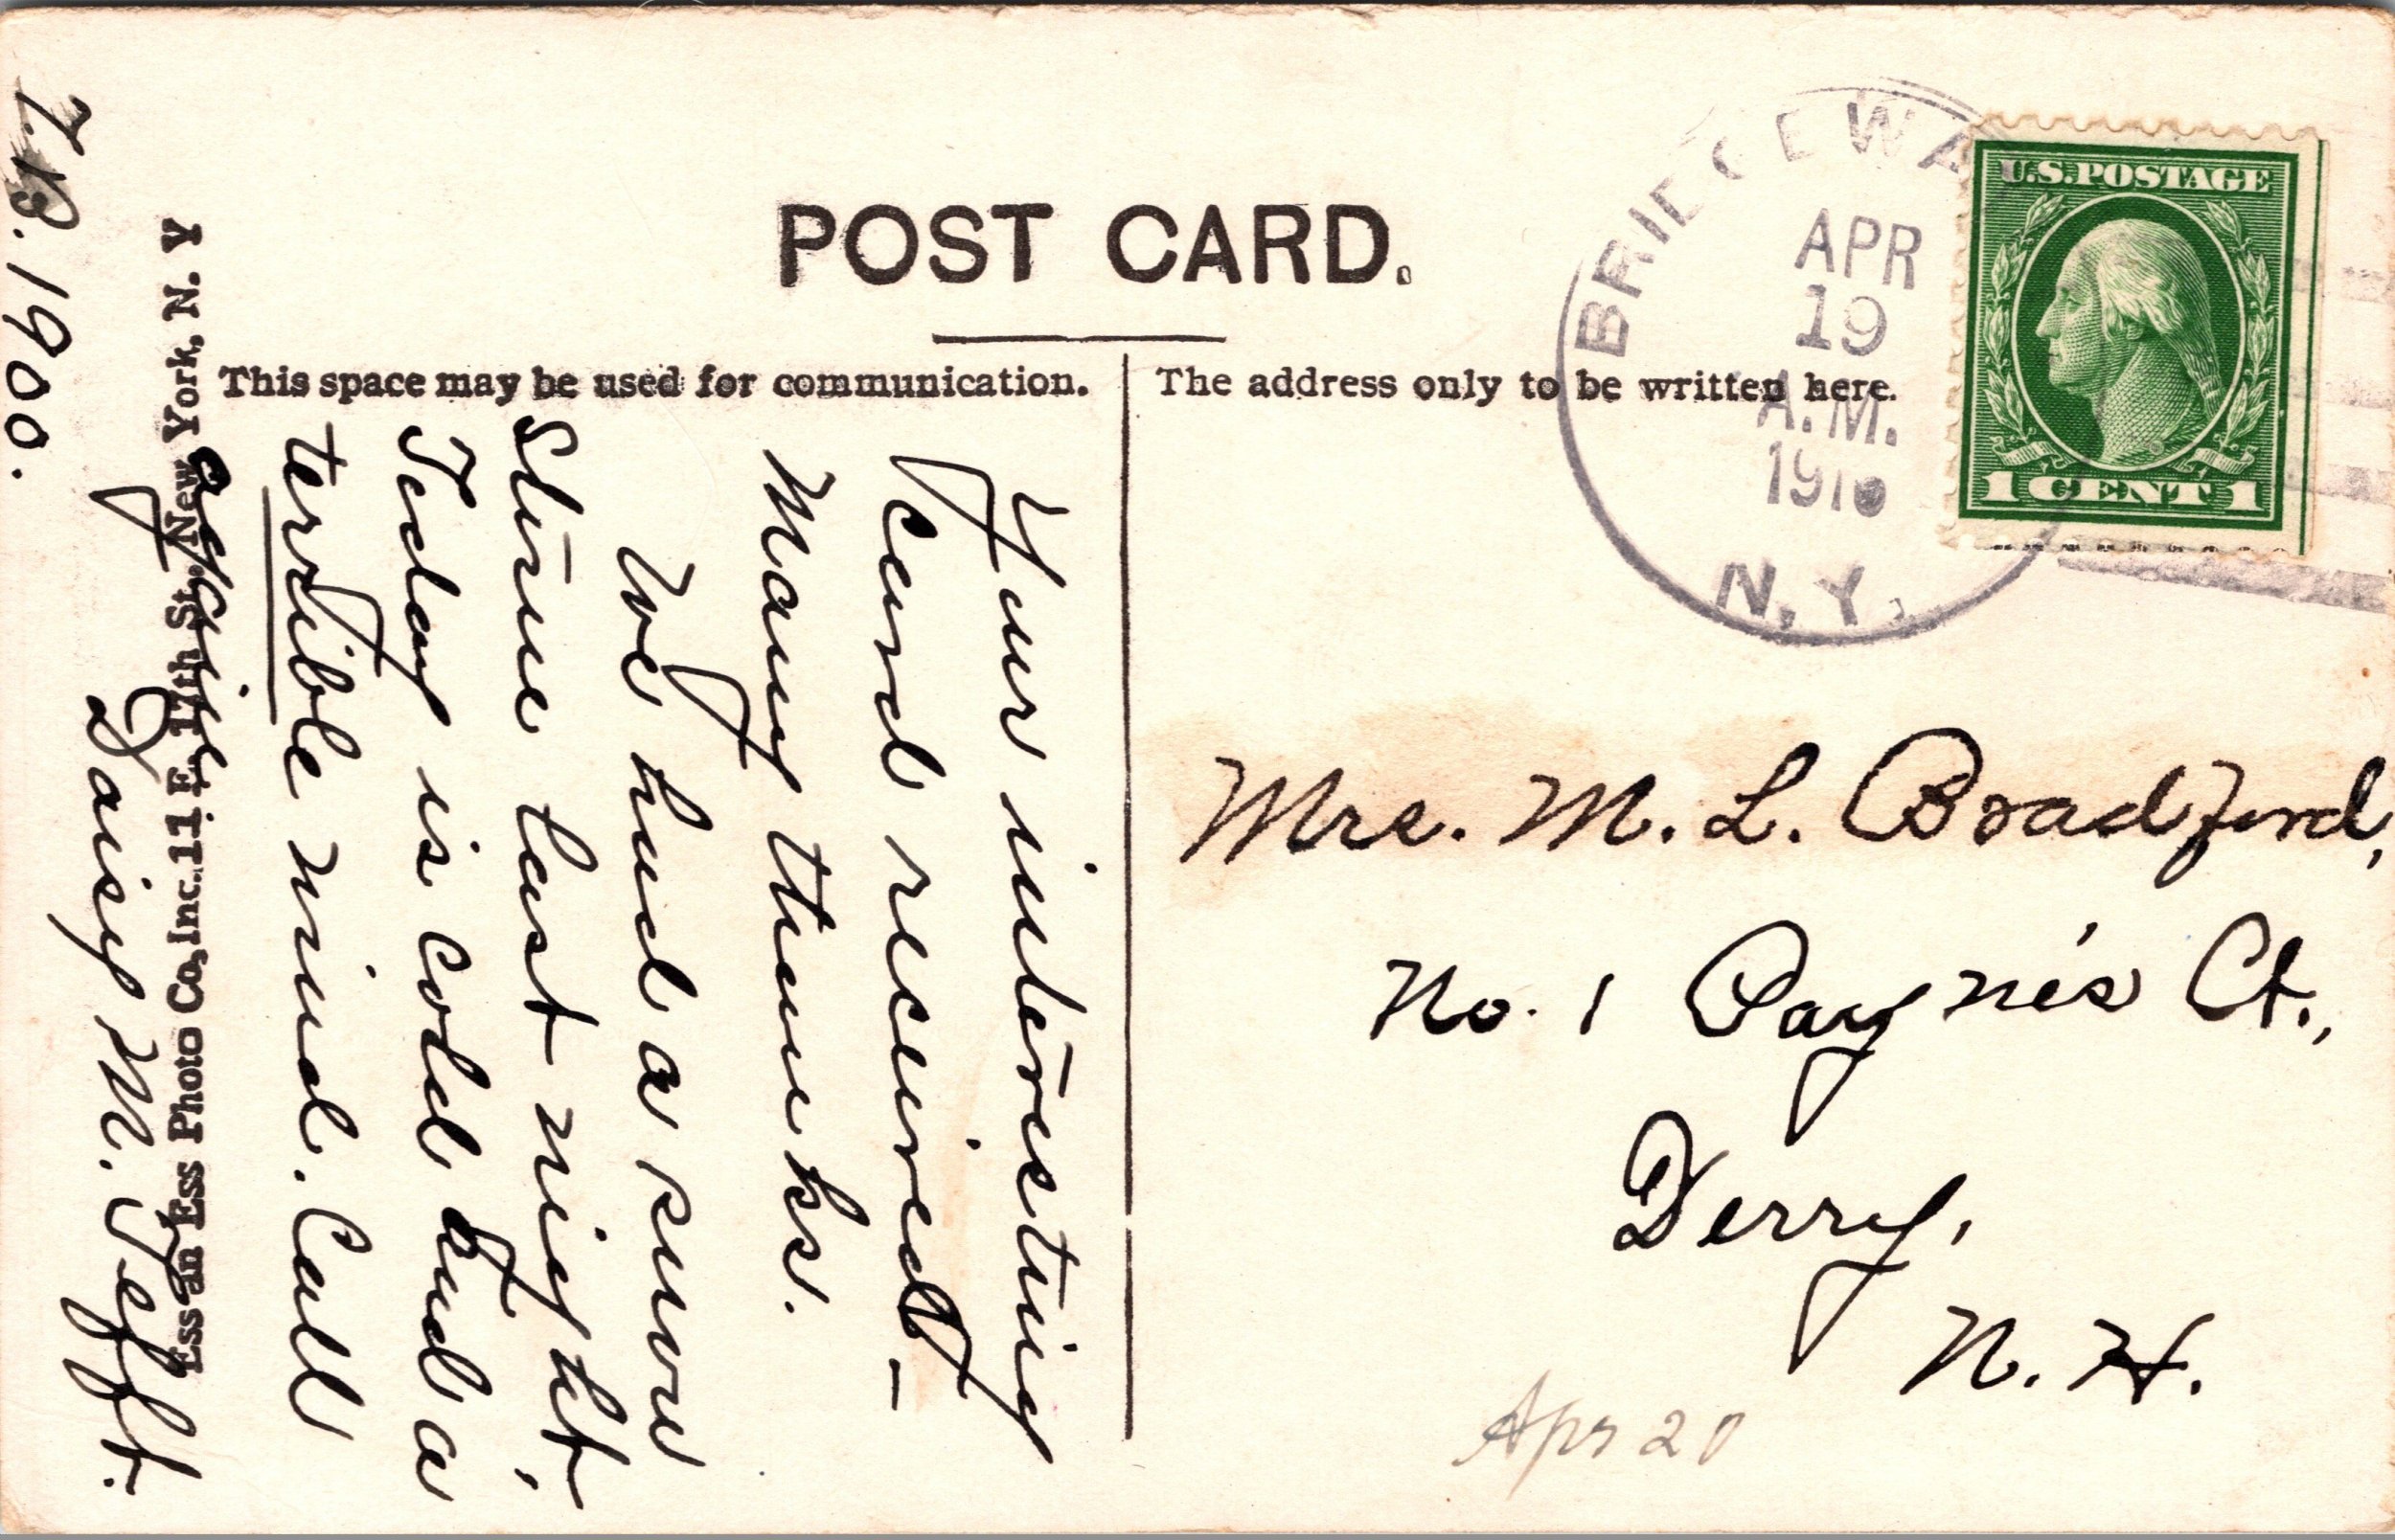 POST CARD.
This space may be used for communication.
The address only to be written here.
BRIDGEWA
APR
19
A.M.
1916
N.Y.
U.S. POSTAGE
1 CENT 1
Your interesting
card received –
Many thanks.
We had a snow
storm last night,
Today is cold and a
terrible wind. Call
again.
Daisy M. Tefft.
1900.
Ess an Ess Photo Co, Inc. 11 E. 17th St. New York, N. Y
Mrs. M. L. Bradford,
No. 1 Payne's Ct.,
Derry,
N. H.
Apr 20